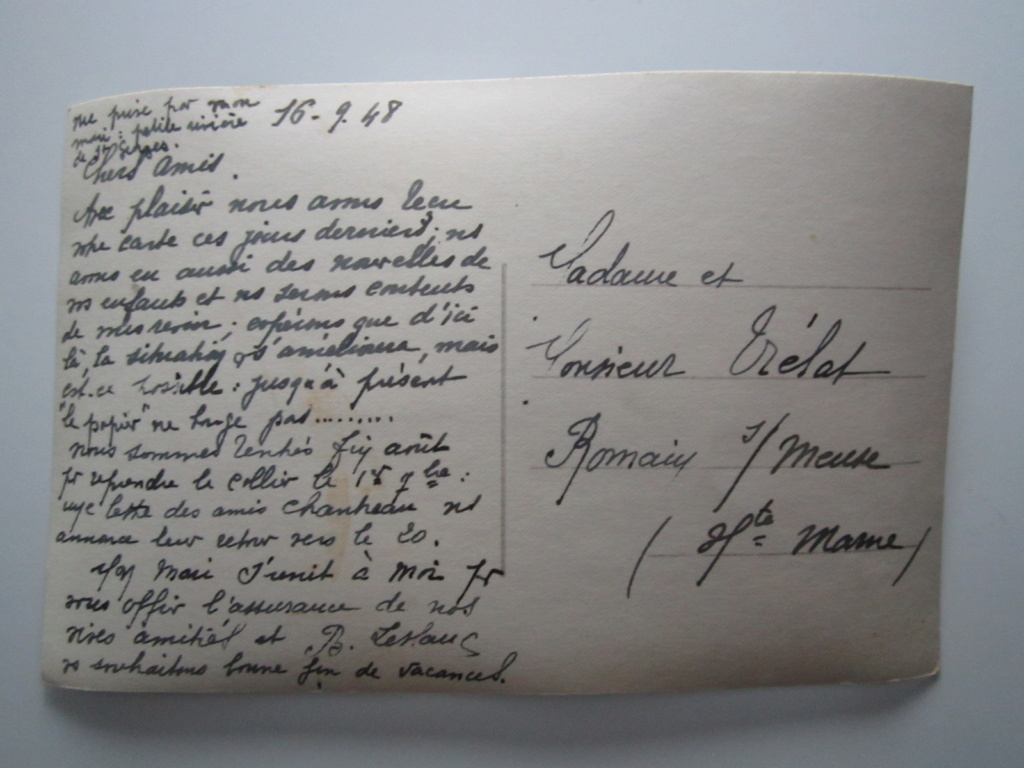 vue prise par mon
mari : petite rivière
de St Georges.
16-9.48
Chers Amis.
Avec plaisir nous avons reçu
votre carte ces jours derniers; ns
avons eu aussi des nouvelles de
vos enfants et ns serons contents
de vous revoir; espérons que d'ici
là, la situation s'améliorera, mais
est-ce possible : jusqu'à présent
"le papier" ne bouge pas.........
nous sommes rentrés fin août
pr reprendre le collier le 1er 7bre :
une lettre des amis Chanteau ns
annonce leur retour vers le 20.
Mon Mari s'unit à Moi pr
vous offrir l'assurance de nos
vives amitiés et
vs souhaitons bonne fin de vacances.
Madame et
Monsieur Trélat
Romain s/Meuse
(Hte Marne)